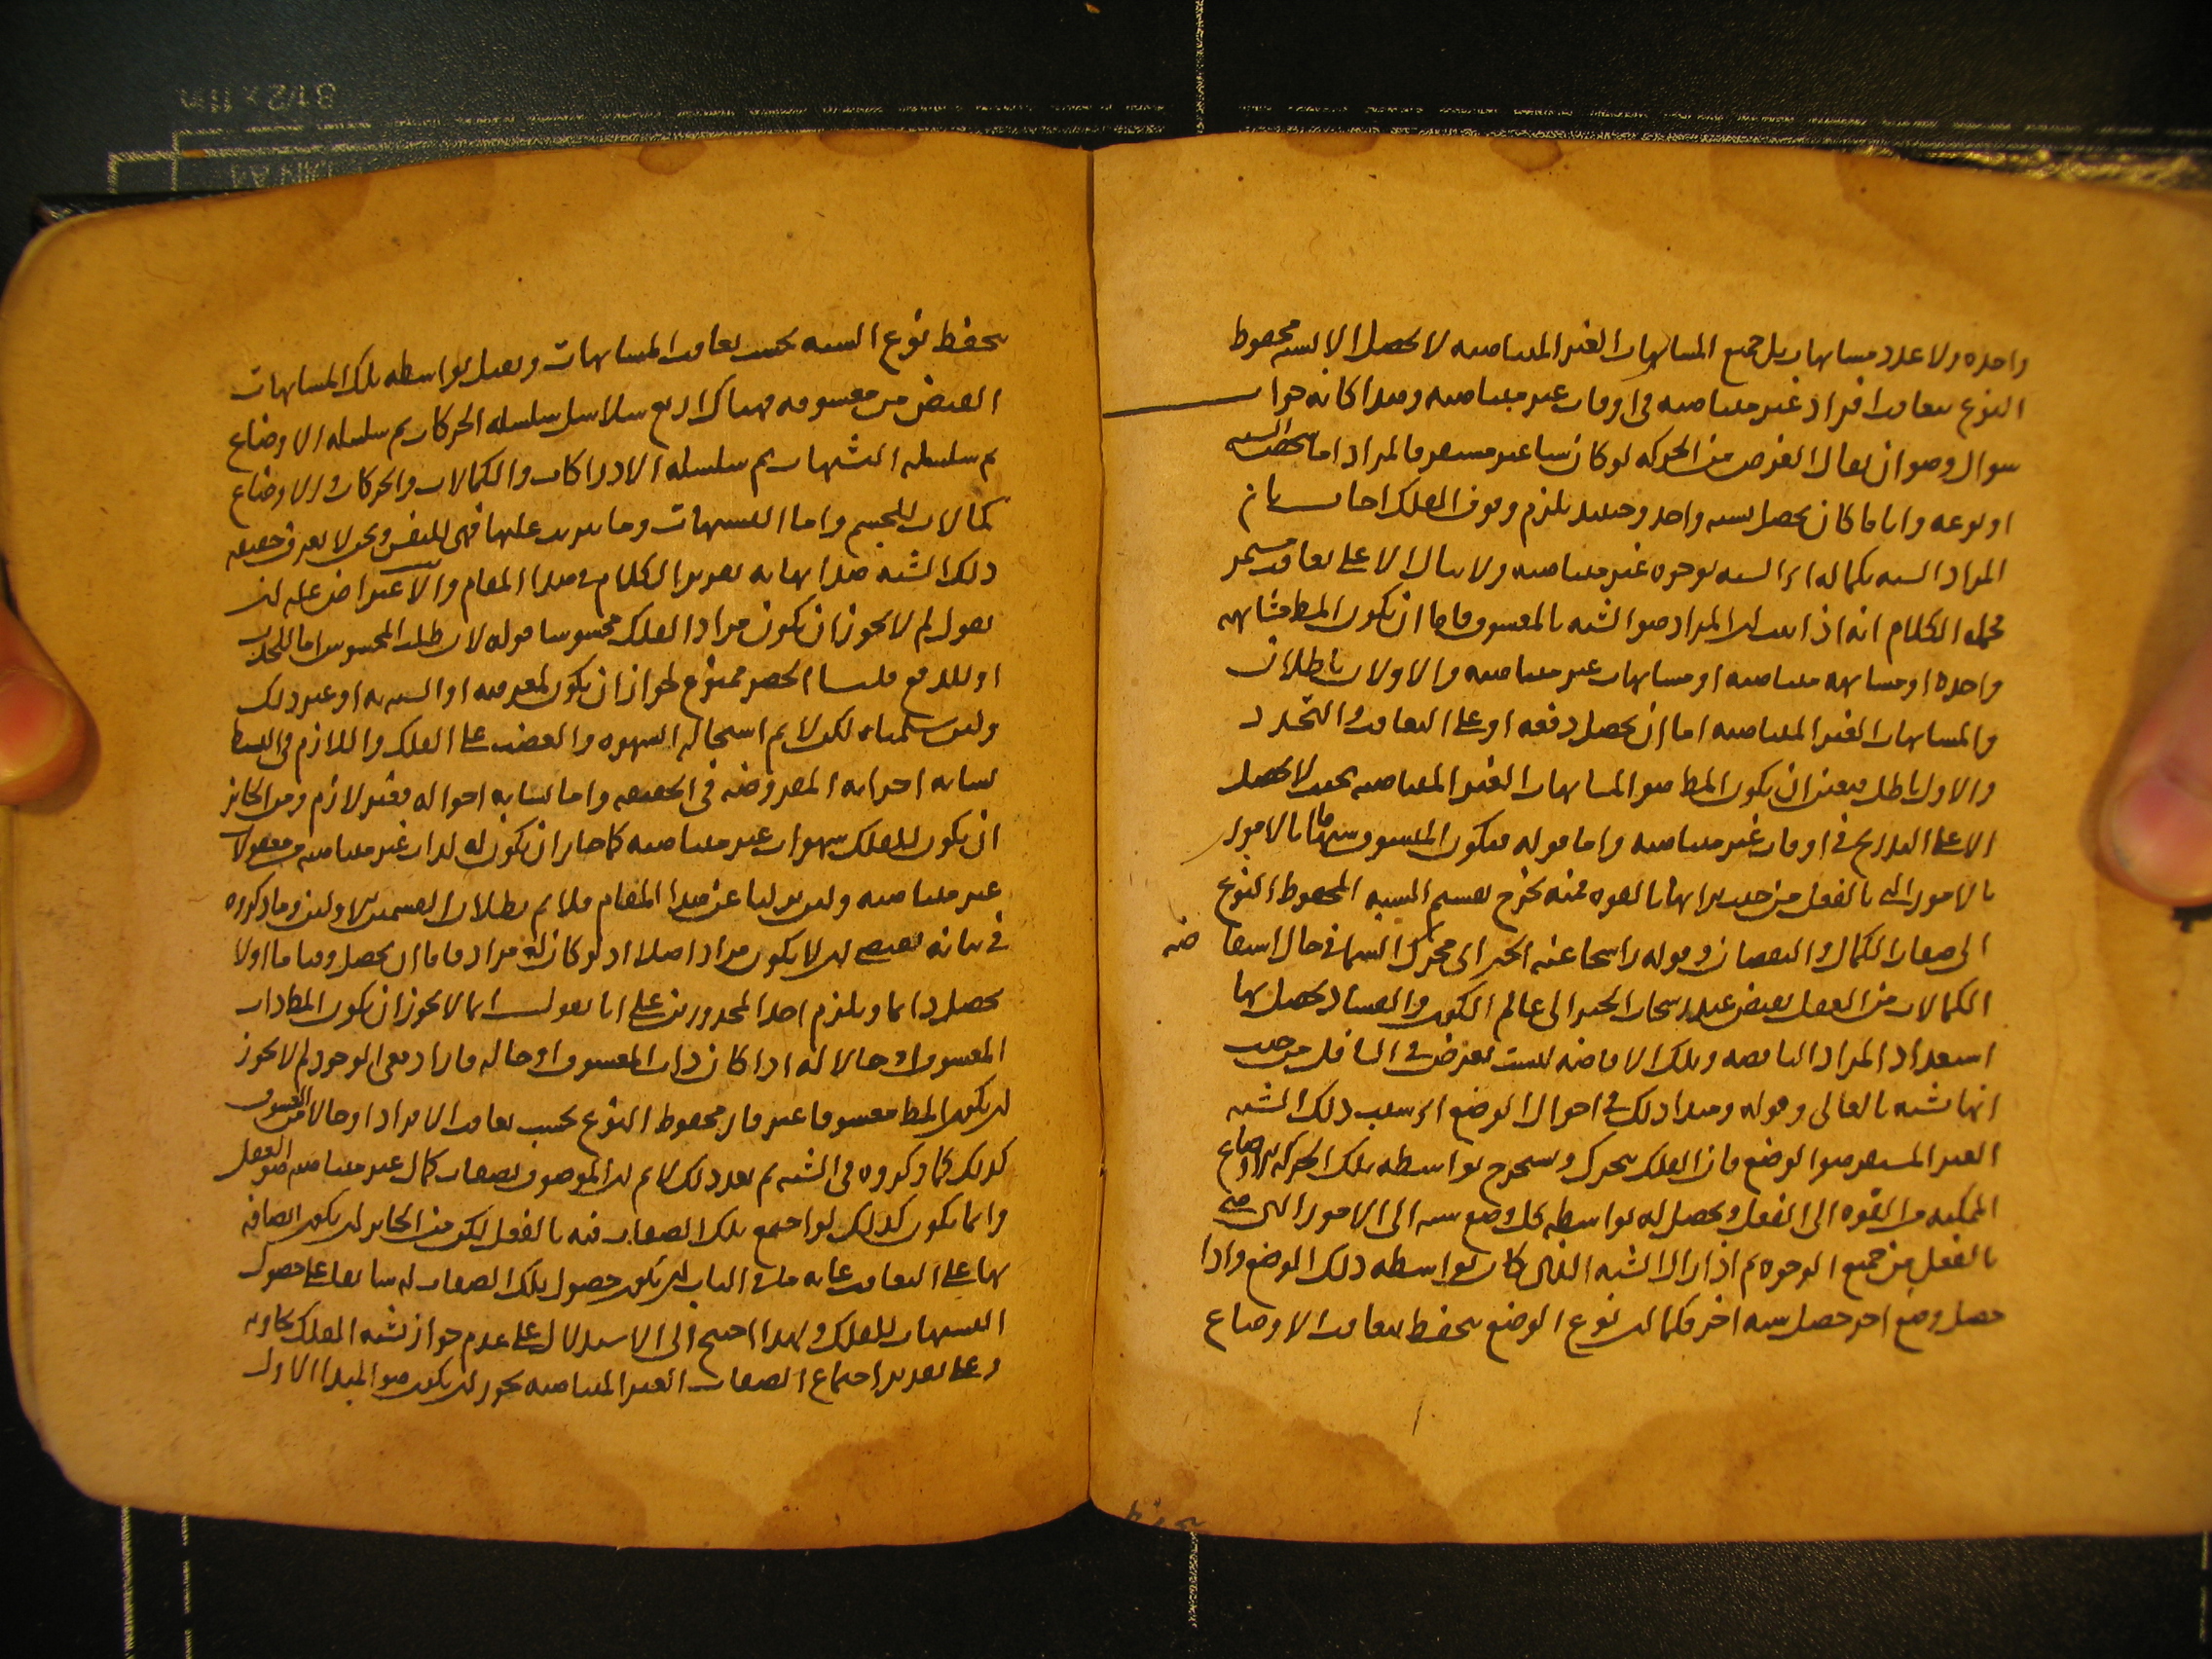 واحده ولا عدد مسابهات بل جميع المسابهات الغير المتناهيه لا يحصل الا بسبه محفوظ
النوع بتعاقب افراد غير متناهيه في اوقات غير متناهيه وهذا كانه جواب
سوال وهو ان يقال الغرض من الحركه لو كان شيا غير مستقر فالمراد اما شخص السبه
او نوعه واياما كان يحصل بسبه واحد وحينئذ يلزم وقوف الفلك اجاب بان
المراد السبه بكماله اي السبه بوجوه غير متناهيه ولا ينال الا على تعاقب مستمر
محمله الكلام انه اذا ثبت ان المراد هو الشبه بالمعشوق فاما ان يكون المط مشابهه
واحده او مسابهه متناهيه او مسابهات غير متناهيه والاولان باطلان
والمسابهات الغير المتناهيه اما ان يحصل دفعه او على التعاقب والتجدد
والاول باطل فتعين ان يكون المط هو المسابهات الغير المتناهيه بحيث لا يحصل
الا على التدريج في اوقات غير متناهيه واما قوله فيكون المتشوق متشبها بالامور
بالامور التي بالفعل من حيث براتها بالقوه فمنه يخرج تقسيم السبه المحفوظ النوع
الى صفات الكمال والنقصان وقوله راشحا عنه الخير اي محرك السما في حال استفا ضه
الكمالات من العقل يفيض عنه رشحات الخير الى عالم الكون والفساد يحصل بها
استعداد المراد الناقصه وتلك الافاضه ليست بغرض في السافل من حيث
انها تشبه بالعالي وقوله ومبدا ذلك في احوال الوضع اي سبب ذلك الشبه
الغير المستقر هو الوضع فان الفلك يتحرك ويستخرج بواسطه تلك الحركه الاوضاع
الممكنه من القوه الى الفعل ويحصل له بواسطه كل وضع سبه الى الامور التي هي
بالفعل من جميع الوجوه ثم اذا زال الشبه الذي كان بواسطه ذلك الوضع واذا
حصل وضع اخر حصل سبه اخر فكما ان نوع الوضع يحفظ بتعاقب الاوضاع
يحفظ
يحفظ نوع السبه بحسب تعاقب المسابهات ويقبل بواسطه تلك المسابهات
الفيض من معشوقه فهناك اربع سلاسل سلسله الحركات ثم سلسله الاوضاع
ثم سلسله الشبهات ثم سلسله الادراكات والكمالات والحركات والاوضاع
كمالات للجسم واما التشبهات وما يترتب عليها فهي للنفس ونحن لا نعرف حقيقه
ذلك الشبه هذا نهايه تقرير الكلام في هذا المقام والاعتراض عليه ان
نقول لم لا يجوز ان يكون مراد الفلك محسوسا قوله لان طلب المحسوس اما للجذب
او للدفع قلنا الحصر ممنوع لجواز ان يكون لمعرفته او التشبه به او غير ذلك
ولئن سلمناه لكن لا نم استحاله الشهوه والغضب على الفلك واللازم في البسط
تشابه اجزايه المفروضه في الحقيقه واما تشابه احواله فغير لازم ومن الجايز
ان يكون للفلك شهوات غير متناهيه كما جاز ان يكون له لذات غير متناهيه من معقولات
غير متناهيه ولئن نزلنا عن هذا المقام فلا نم بطلان القسمين الاولين وما ذكروه
في بيانه يقتضي ان لا يكون مراد اصلا اذ لو كان له مراد فاما ان يحصل وقتا ما او لا
يحصل دايما ويلزم احد المحذورين على انا نقول ايما لا يجوز ان يكون المط ذات
المعشوق او حالا له اذا كان ذات المعشوق او حاله قارا دفعي الوجود لم لا يجوز
ان يكون المط معشوقا غير قار محفوظ النوع بحسب تعاقب الافراد او حالا من المعشوق
كذلك كما ذكروه في الشبه ثم بعد ذلك لا نم ان الموصوف بصفات كمال غير متناهيه هو العقل
وانما يكون كذلك لو اجتمع تلك الصفات فيه بالفعل لكن من الجايز ان يكون اتصافه
بها على التعاقب غايه ما في الباب ان يكون حصول تلك الصفات له سابقا على حصول
التشبهات للفلك ولهذا احتج الى الاستدلال على عدم جواز تشبه الفلك بحاويه
وعلى تقدير اجتماع الصفات الغير المتناهيه يجوز ان يكون هو المبدا الاول